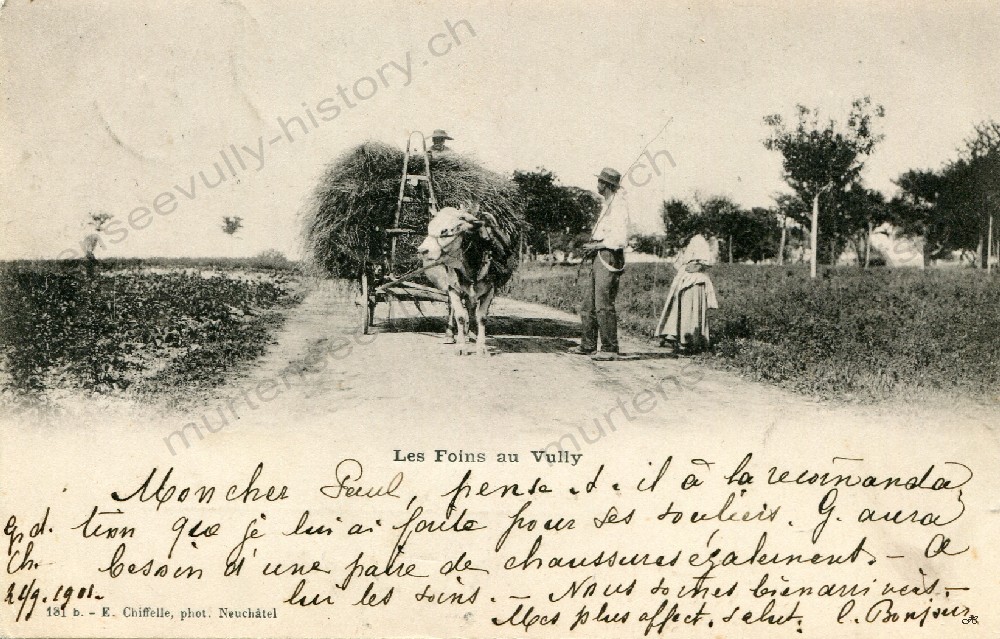 murtenseevully-history.ch
murtenseevully-history.ch
murtenseevully-history.ch
Les Foins au Vully
Mon cher Paul, pense-t-il à la recomanda
tion que je lui ai faite pour ses souliers. G. aura
besoin d'une paire de chaussures également. - a
lui les soins. - Nous somes bien arrivés. -
Mes plus affect. salut. C. Bonjour
Gd.
Ch.
21/9. 1901.
131 b. - E. Chiffelle, phot. Neuchâtel